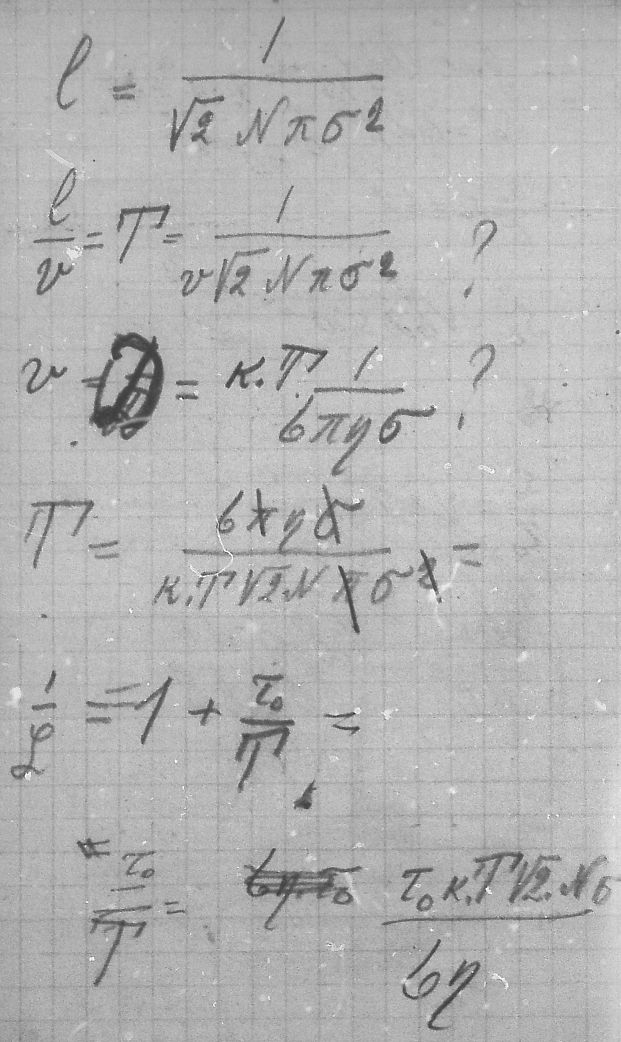 l = 1 / √2 N π σ²
l/v = T = 1 / v √2 N π σ² ?
v = к.T 1 / 6πησ ?
T = 6πησ / к.T √2 N π σ² =
1/𝓛 = 1 + τ₀/T =
= τ₀/T = τ₀ к.T √2. Nσ / 6η